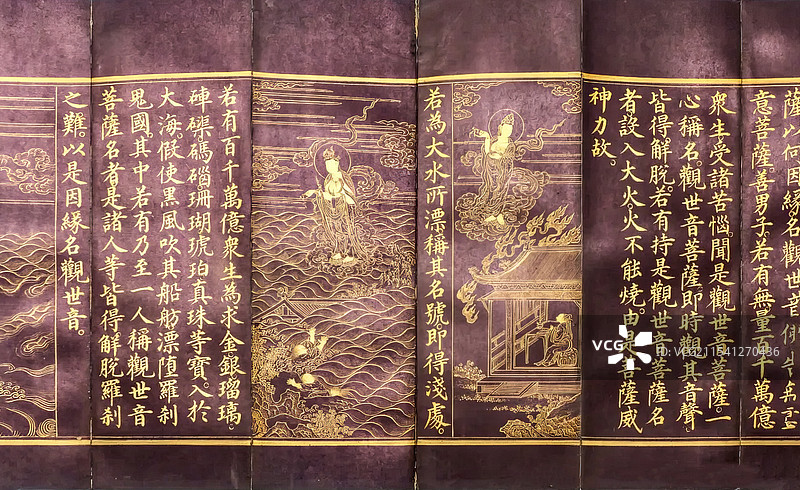 薩以何因緣名觀世音佛告無盡
意菩薩善男子若有無量百千萬億
衆生受諸苦惱聞是觀世音菩薩。一
心稱名。觀世音菩薩。即時觀其音聲
皆得解脫。若有持是觀世音菩薩名
者設入大火火不能燒。由是菩薩威
神力故。
若為大水所漂。稱其名號。即得淺處。
若有百千萬億衆生為求金銀瑠璃。
硨磲碼碯珊瑚琥珀真珠等寶。入於
大海。假使黒風吹其船舫漂墮羅刹
鬼國。其中若有乃至一人稱觀世音
菩薩名者。是諸人等皆得解脫羅刹
之難。以是因緣名觀世音。
VCG
ID:VCG211541270436